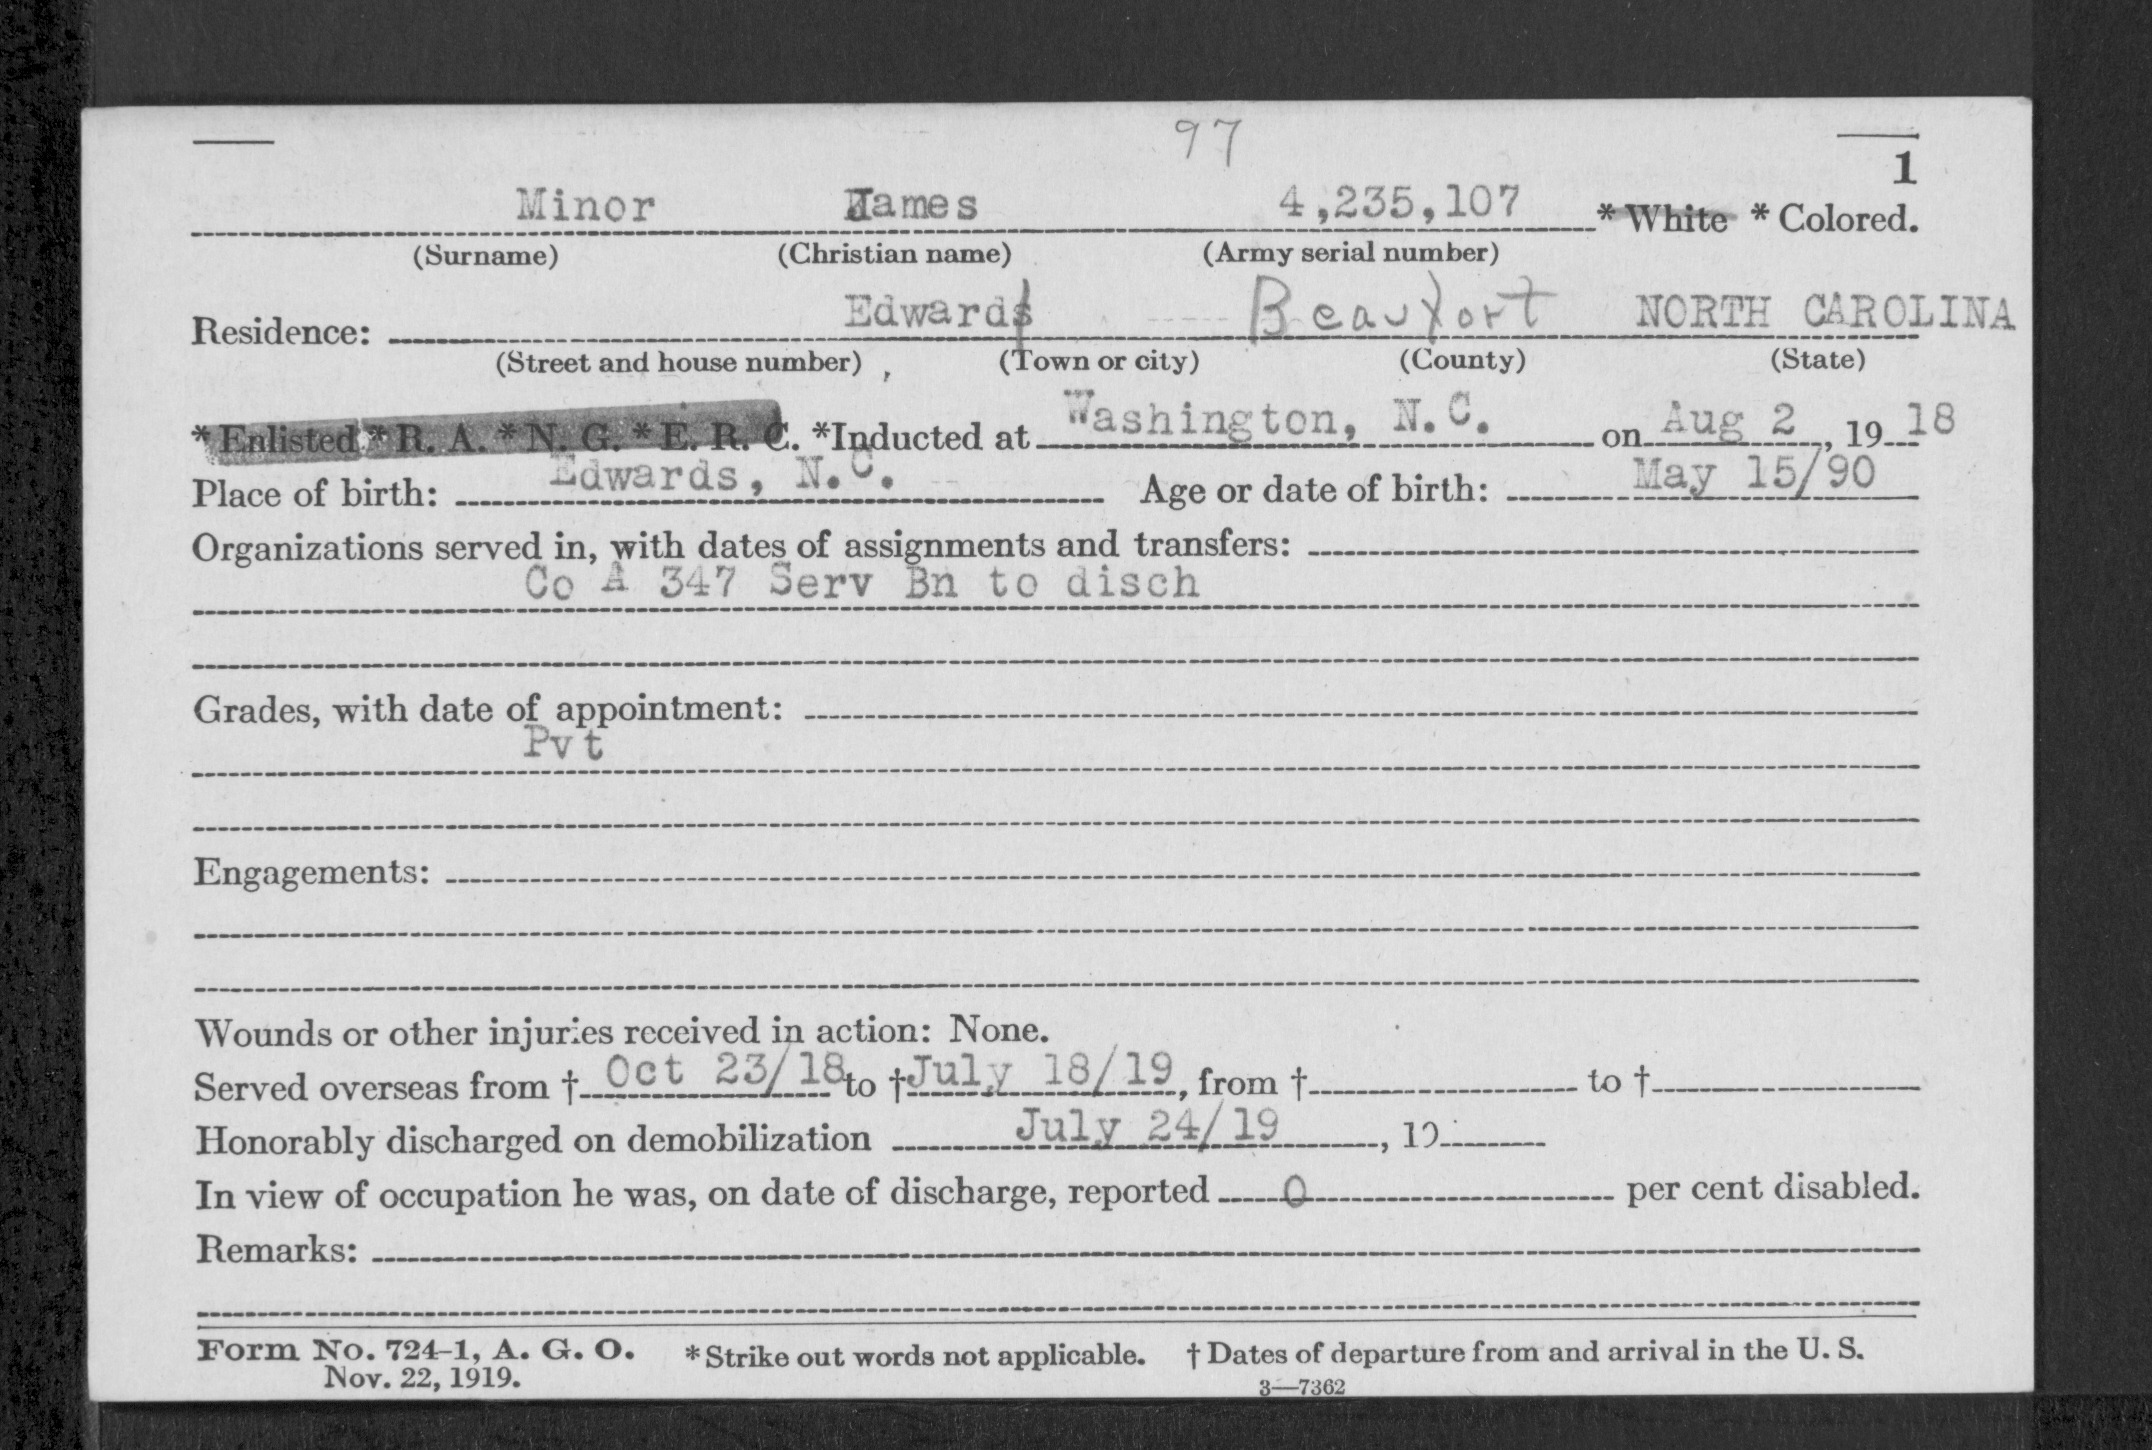 97
1
Minor James 4,235,107 * White * Colored.
(Surname) (Christian name) (Army serial number)
Residence: Edwards Beaufort NORTH CAROLINA
(Street and house number) (Town or city) (County) (State)
* Enlisted * R. A. * N. G. * E. R. C. *Inducted at Washington, N.C. on Aug 2, 1918
Place of birth: Edwards, N.C. Age or date of birth: May 15/90
Organizations served in, with dates of assignments and transfers:
Co A 347 Serv Bn to disch
Grades, with date of appointment:
Pvt
Engagements:
Wounds or other injuries received in action: None.
Served overseas from † Oct 23/18 to † July 18/19, from † to †
Honorably discharged on demobilization July 24/19, 19
In view of occupation he was, on date of discharge, reported 0 per cent disabled.
Remarks:
Form No. 724-1, A. G. O. * Strike out words not applicable. † Dates of departure from and arrival in the U. S.
Nov. 22, 1919. 3—7362